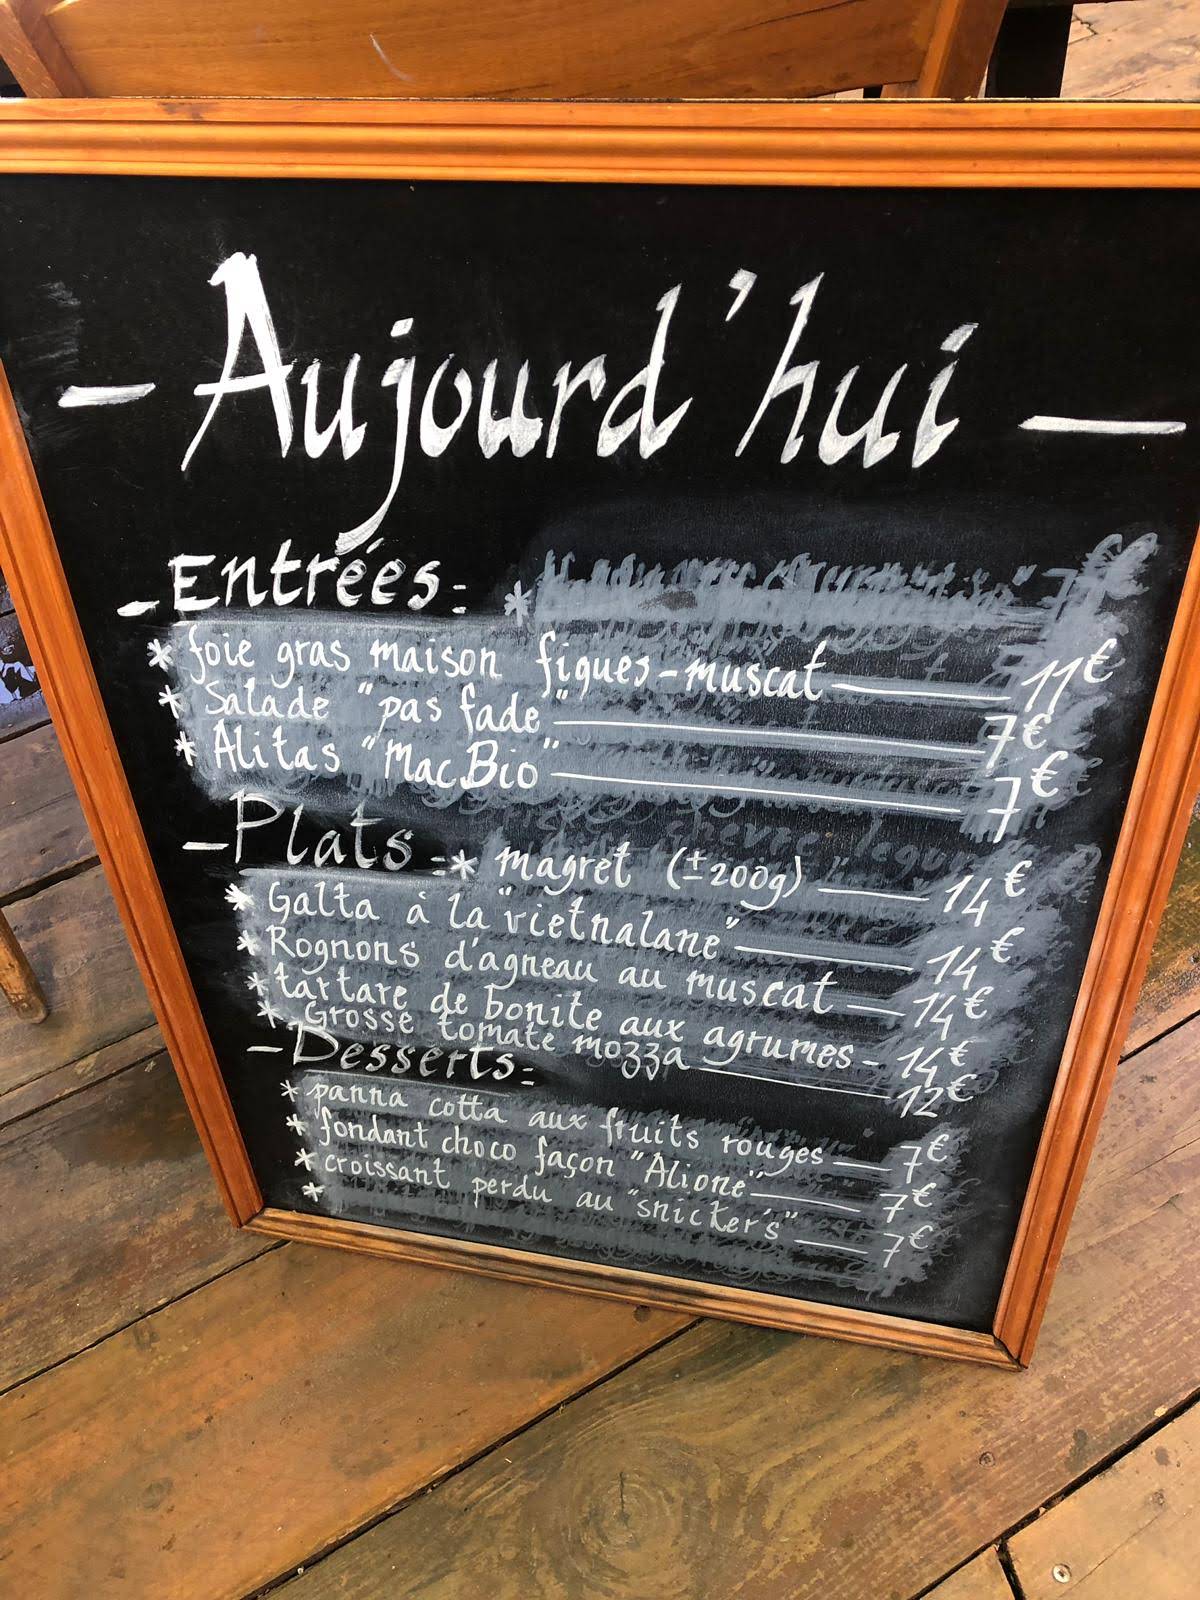 - Aujourd'hui -
- Entrées: *
* foie gras maison figues-muscat — 11€
* Salade "pas fade" — 7€
* Alitas "MacBio" — 7€
- Plats: * magret (±200g) — 14€
* Galta à la "vietnalane" — 14€
* Rognons d'agneau au muscat — 14€
* tartare de bonite aux agrumes - 14€
* Grosse tomate mozza — 12€
- Desserts:
* panna cotta aux fruits rouges — 7€
* fondant choco façon "Alione" — 7€
* croissant perdu au "snicker's" — 7€
*